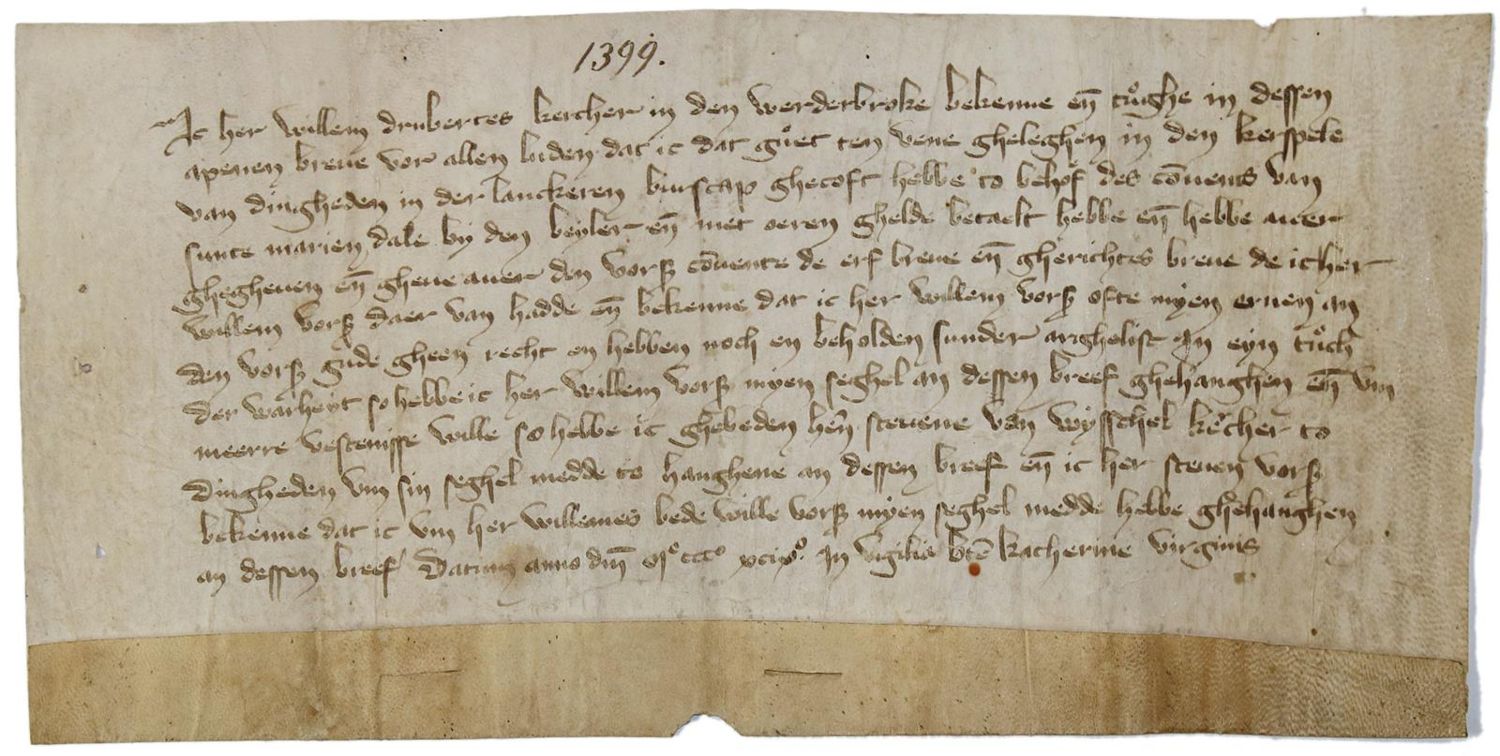 1399.
Ic her willem drubertes kercher in den werderbroke bekenne en̄ tuͦghe in dessen
apenen breue vor allen luden dat ic dat guͦet ten vene gheleghen in den kerspele
van dingheden in der lanckeren burscap ghecoft hebbe to behoͦf des cōuents van
sunte marien dale by den beyler en̄ met oeren ghelde betaelt hebbe en̄ hebbe auer
ghegheuen en̄ gheue auer den vorß cōuente de erf breue en̄ gherichtes breue de ic her
willem vorß daer van hadde en̄ bekenne dat ic her willem vorß ofte myen eruen an
den vorß gude gheen recht en hebben noch en beholden sunder arghelist In eyn tuͦch
der warheyt so hebbe ic her willem vorß myen seghel an dessen breef ghehanghen en̄ vm
meerre vestenisse wille so hebbe ic ghebeden hern̄ steuene van wysschel kercher to
dingheden vm sin seghel medde to hanghene an dessen breef en̄ ic her steuen vorß
bekenne dat ic vm her willemes bede wille vorß myen seghel medde hebbe ghehanghen
an dessen breef Datum anno dm̄ mͦ cccͦ xcixͦ In vigilia btē katherine virginis